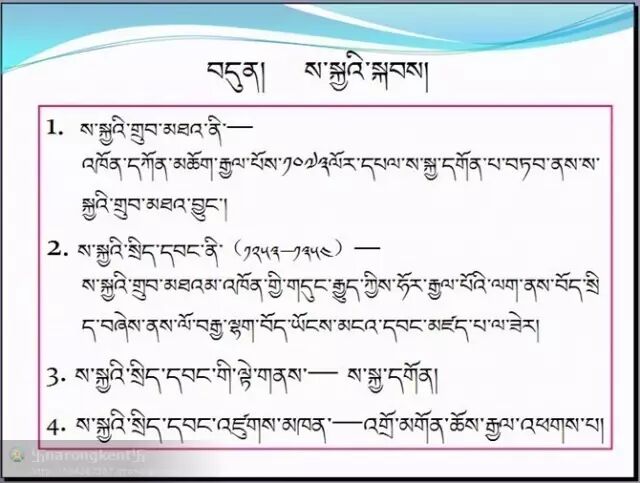 བདུན། ས་སྐྱའི་སྐབས།
1. ས་སྐྱའི་གྲུབ་མཐའ་ནི་—
འཁོན་དཀོན་མཆོག་རྒྱལ་པོས་༡༠༧༣ལོར་དཔལ་ས་སྐྱ་དགོན་པ་བཏབ་ནས་ས་
སྐྱའི་གྲུབ་མཐའ་བྱུང་།
2. ས་སྐྱའི་སྲིད་དབང་ནི་ (༡༢༥༣—༡༣༥༤) —
ས་སྐྱའི་གྲུབ་མཐའམ་འཁོན་གྱི་གདུང་རྒྱུད་ཀྱིས་ཧོར་རྒྱལ་པོའི་ལག་ནས་བོད་སྲི
ད་བཞེས་ནས་ལོ་བརྒྱ་ལྷག་བོད་ཡོངས་མངའ་དབང་མཛད་པ་ལ་ཟེར།
3. ས་སྐྱའི་སྲིད་དབང་གི་ལྟེ་གནས་— ས་སྐྱ་དགོན།
4. ས་སྐྱའི་སྲིད་དབང་འཛུགས་མཁན་—འགྲོ་མགོན་ཆོས་རྒྱལ་འཕགས་པ།
narongkent